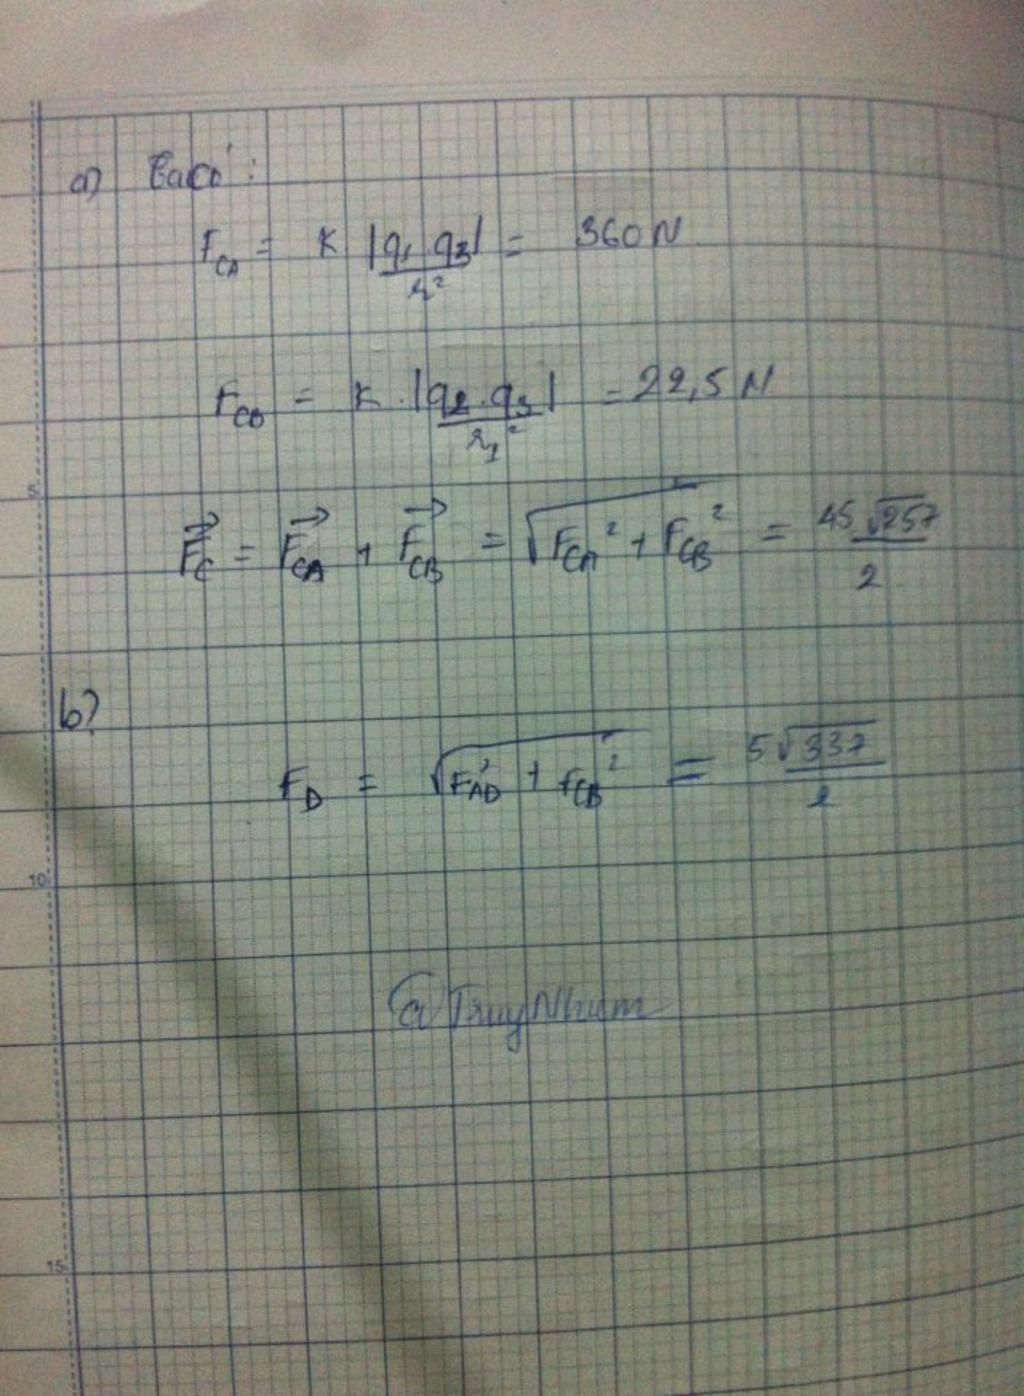 a) Ta có :
F_CA = K |q1 q3| / r² = 360 N
F_CB = K . |q2 . q3| / r1² = 22,5 N
F⃗_C = F⃗_CA + F⃗_CB = √(F_CA² + F_CB²) = 45√257 / 2
5
b)
F_D = √(F_AD² + F_CB²) = 5√337 / 2
10
@TruyNhum
15